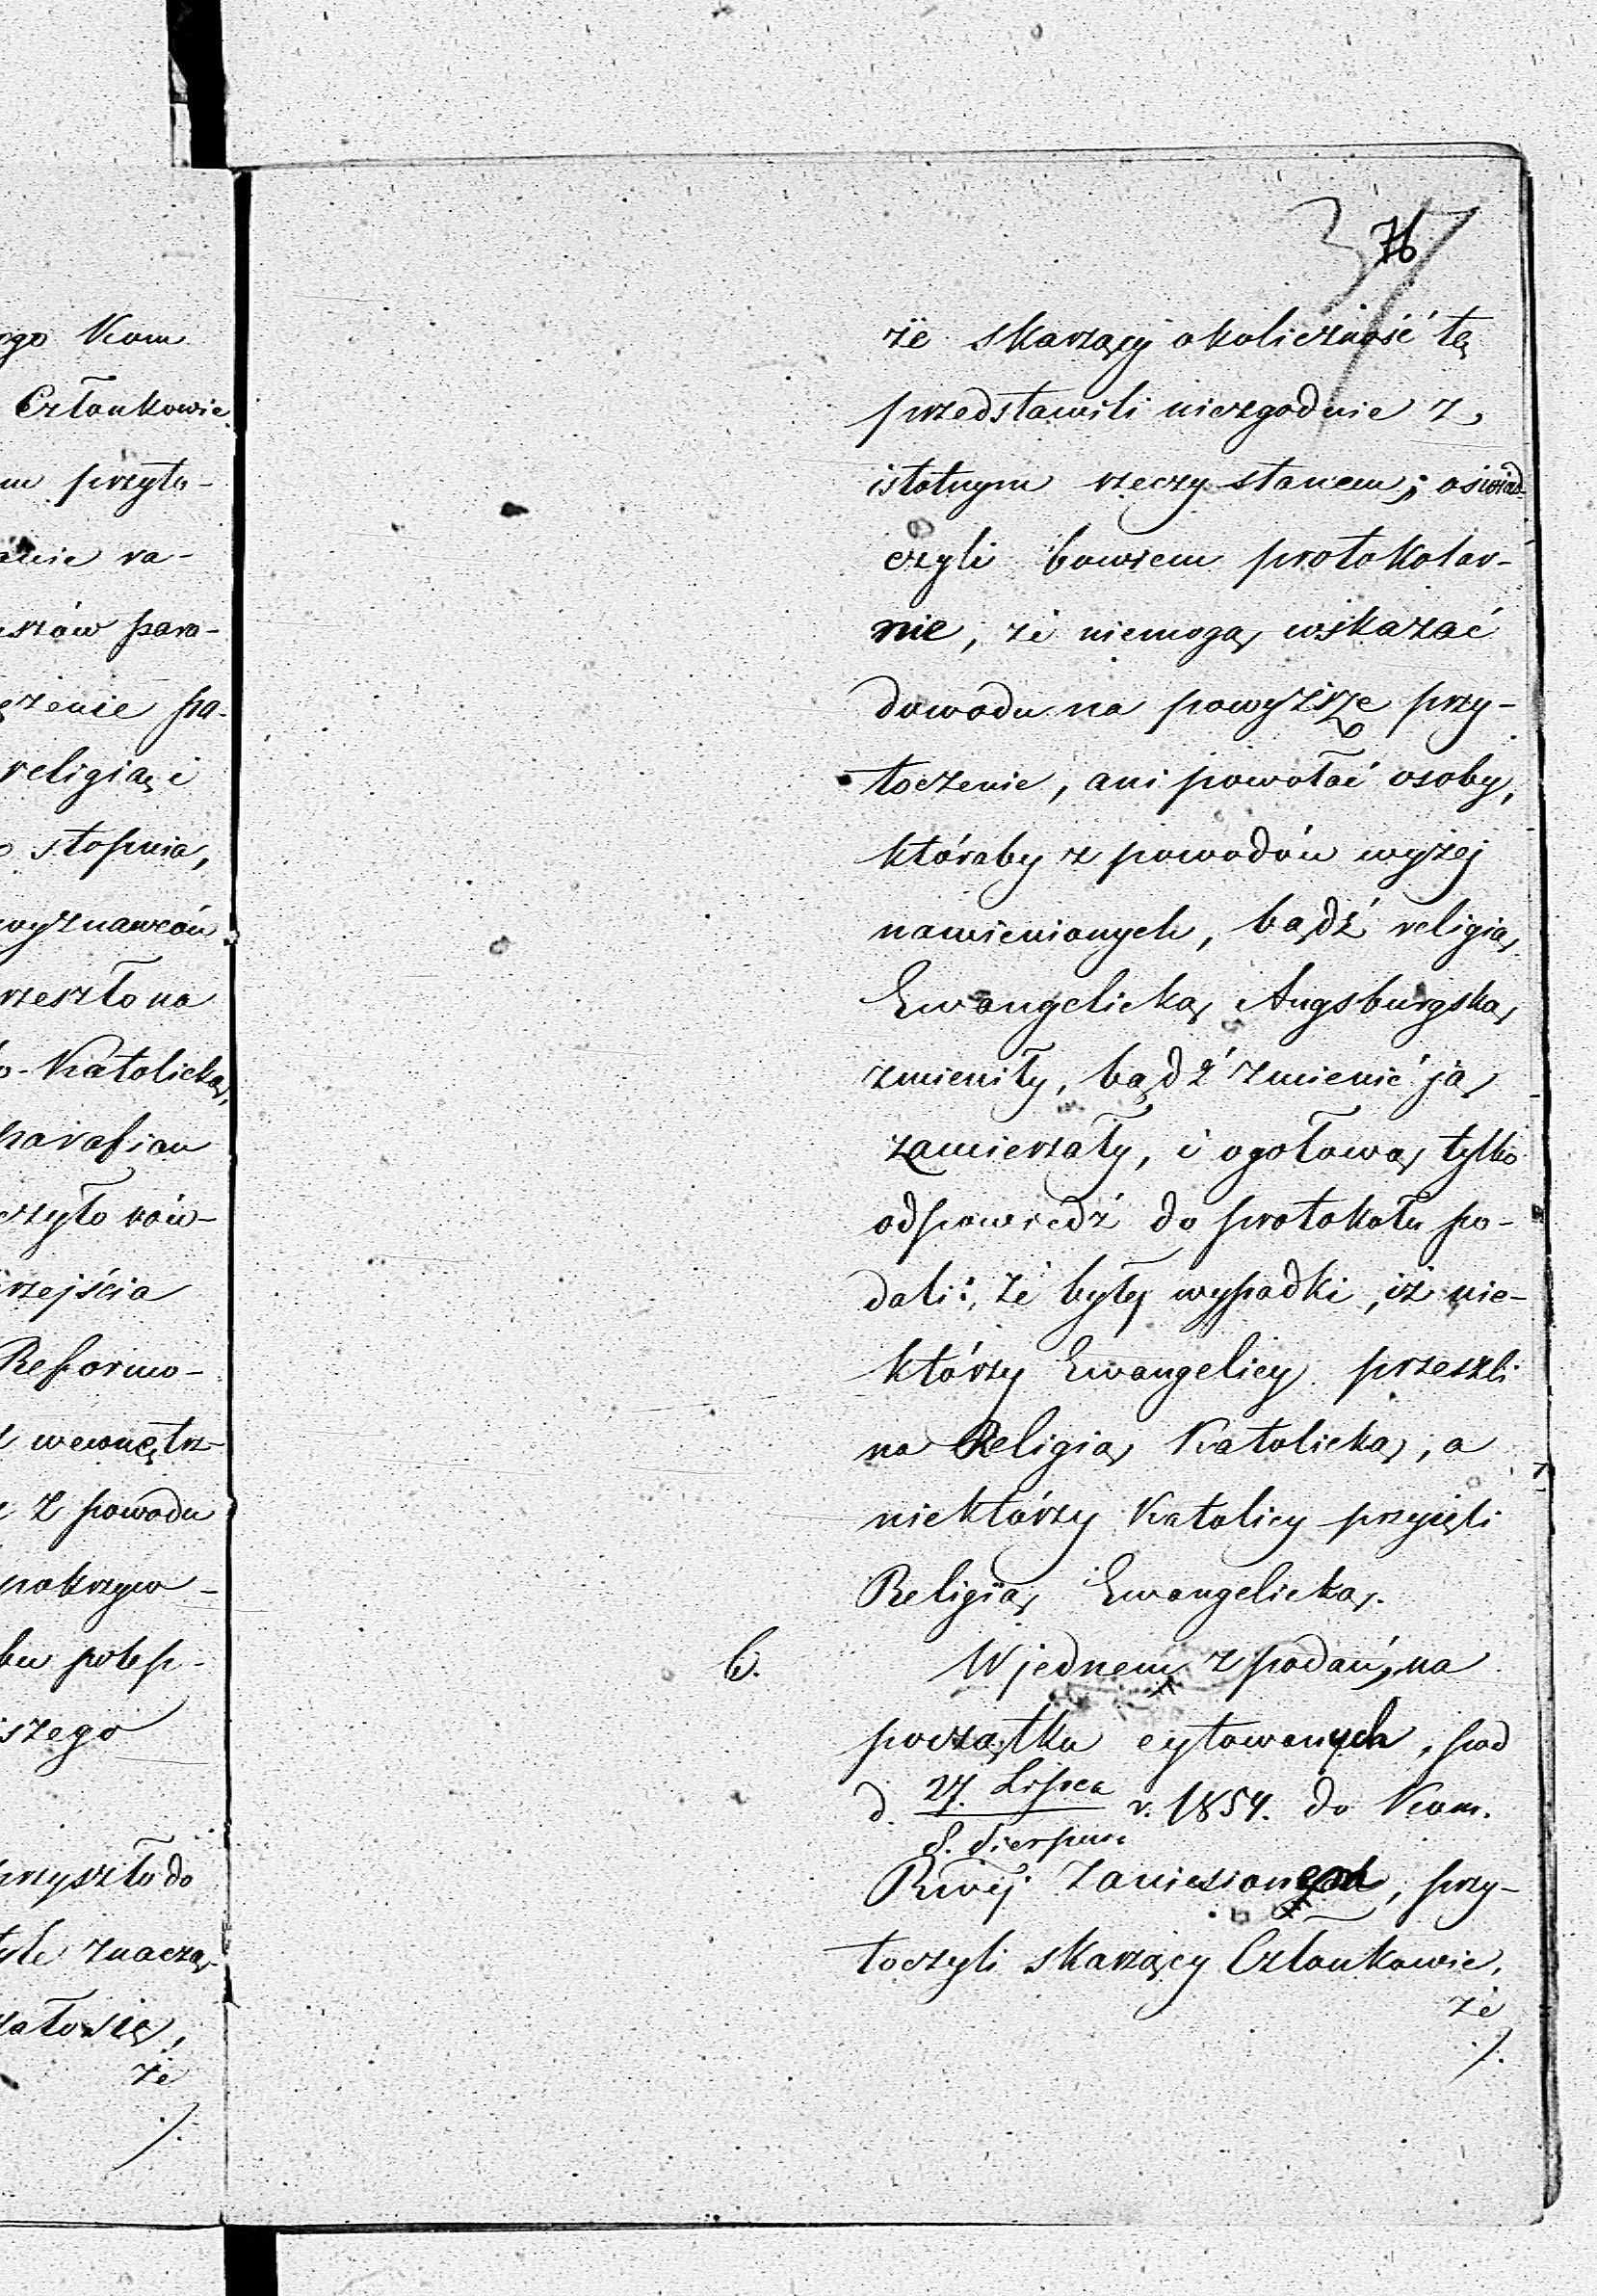 ogo Kom
Członkowie
m przyto-
anie ra-
uszów para-
ączenie pa-
religią i
o stopnia,
wyznawców
rzeszło na
o-Katolicką,
parafian
czyło rów-
rzejścia
Reformo-
wewnętrz-
z powodu
pokrzyw-
bu polep-
iszego
przyszło do
tyle znaczą-
zało się,
że
./.
37
76
że skarżący okoliczność tę
przedstawili niezgodnie z
istotnym rzeczy stanem; oświad-
czyli bowiem protokolar-
nie, że niemogą wskazać
dowodu na powyższe przy-
toczenie, ani powołać osoby,
któraby z powodów wyżej
namienionych, bądź religią
Ewangelicką Augsburgską
zmieniły, bądź zmienić ją
zamierzały, i ogołową tylko
odpowiedź do protokołu po-
dali: że były wypadki, iż nie-
którzy Ewangelicy przeszli
na Religią Katolicką, a
niektórzy Katolicy przyjęli
Religią Ewangelicką.
b. W jednem z podań, na
początku cytowanych, pod
d. 27. Lipca / 8. Sierpnia r. 1854. do Kom.
Rwej zaniesionych, przy-
toczyli skarżący Członkowie,
że
./.